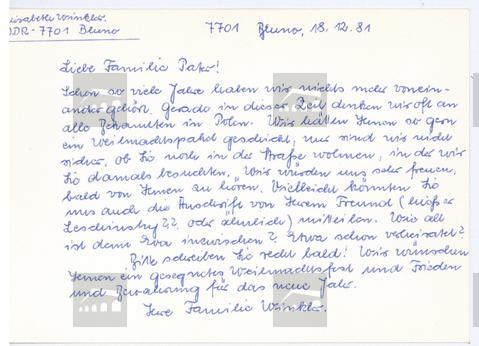 Elisabeth Winkler.
DDR-7701 Bluno
7701 Bluno, 18.12.81
Liebe Familie Pater!
Schon so viele Jahre haben wir nichts mehr vonein-
ander gehört. Gerade in dieser Zeit denken wir oft an
alle Bekannten in Polen. Wir hätten Ihnen so gern
ein Weihnachtspaket geschickt, nur sind wir nicht
sicher, ob Sie noch in der Straße wohnen, in der wir
Sie damals besuchten. Wir würden uns sehr freuen,
bald von Ihnen zu hören. Vielleicht könnten Sie
uns auch die Anschrift von Ihrem Freund (hieß er
oder ähnlich) mitteilen. Wie alt
ist denn Eva inzwischen? Etwa schon verheiratet?
Bitte schreiben Sie recht bald! Wir wünschen
Ihnen ein gesegnetes Weihnachtsfest und Frieden
und Bewahrung für das neue Jahr.
Ihre Familie Winkler.